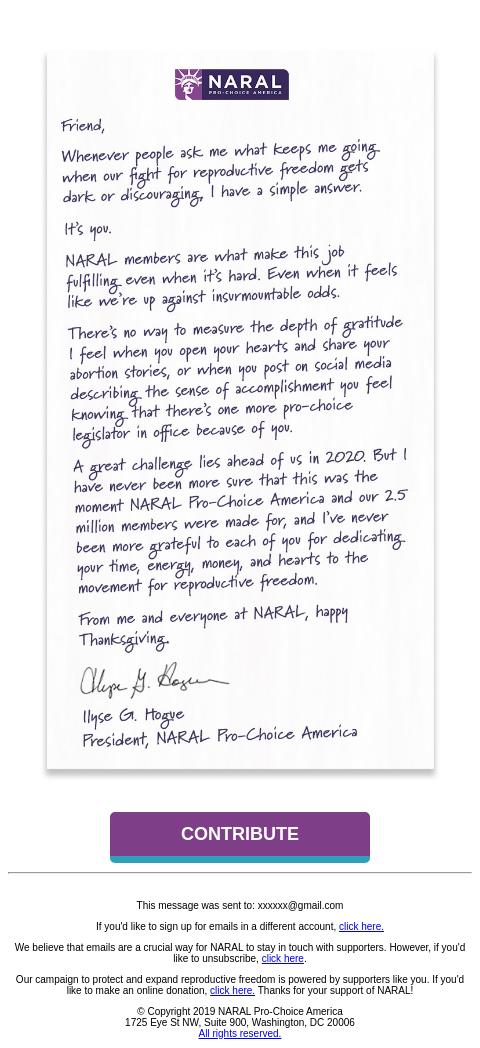 NARAL
PRO-CHOICE AMERICA
Friend,
Whenever people ask me what keeps me going
when our fight for reproductive freedom gets
dark or discouraging, I have a simple answer.
It's you.
NARAL members are what make this job
fulfilling even when it's hard. Even when it feels
like we're up against insurmountable odds.
There's no way to measure the depth of gratitude
I feel when you open your hearts and share your
abortion stories, or when you post on social media
describing the sense of accomplishment you feel
knowing that there's one more pro-choice
legislator in office because of you.
A great challenge lies ahead of us in 2020. But I
have never been more sure that this was the
moment NARAL Pro-Choice America and our 2.5
million members were made for, and I've never
been more grateful to each of you for dedicating
your time, energy, money, and hearts to the
movement for reproductive freedom.
From me and everyone at NARAL, happy
Thanksgiving.
Ilyse G. Hogue
Ilyse G. Hogue
President, NARAL Pro-Choice America
CONTRIBUTE
This message was sent to: xxxxxx@gmail.com
If you'd like to sign up for emails in a different account, click here.
We believe that emails are a crucial way for NARAL to stay in touch with supporters. However, if you'd
like to unsubscribe, click here.
Our campaign to protect and expand reproductive freedom is powered by supporters like you. If you'd
like to make an online donation, click here. Thanks for your support of NARAL!
© Copyright 2019 NARAL Pro-Choice America
1725 Eye St NW, Suite 900, Washington, DC 20006
All rights reserved.